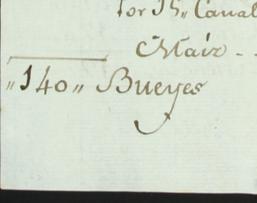 for Th,, Canal
Maiz - -
,,140,, Bueyes